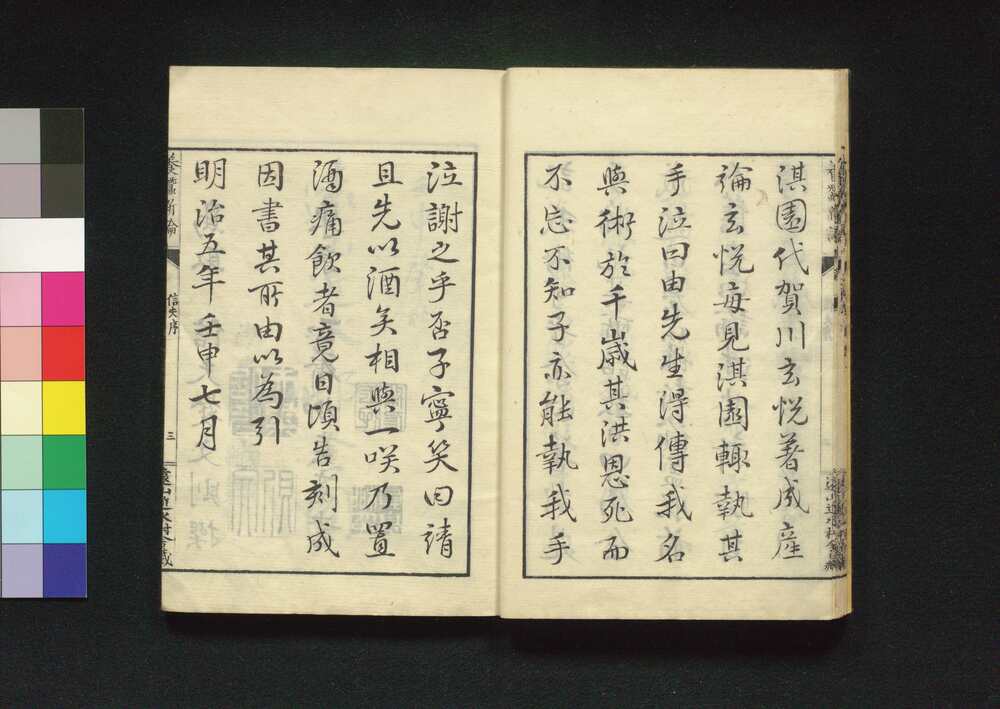 淇園代賀川玄悦著成産
論玄悦毎見淇園輙執其
手泣曰由先生得傳我名
與術於千歳其洪恩死而
不忘不知子亦能執我手
泣謝之乎否子寧笑曰請
且先以酒矣相與一咲乃置
酒痛飲者竟日頃告刻成
因書其所由以為引
明治五年壬申七月
三